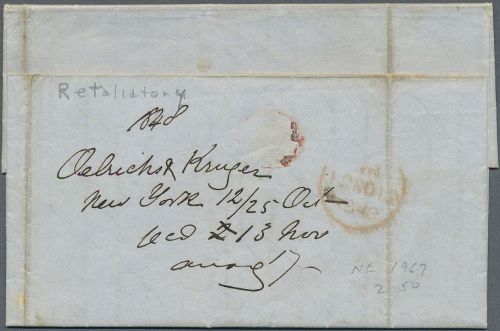 Retaliatory
1848
Oelrichs & Kruger
New York 12/25 Oct
recd 13 Nov
answd 17
NE 1967
2.50